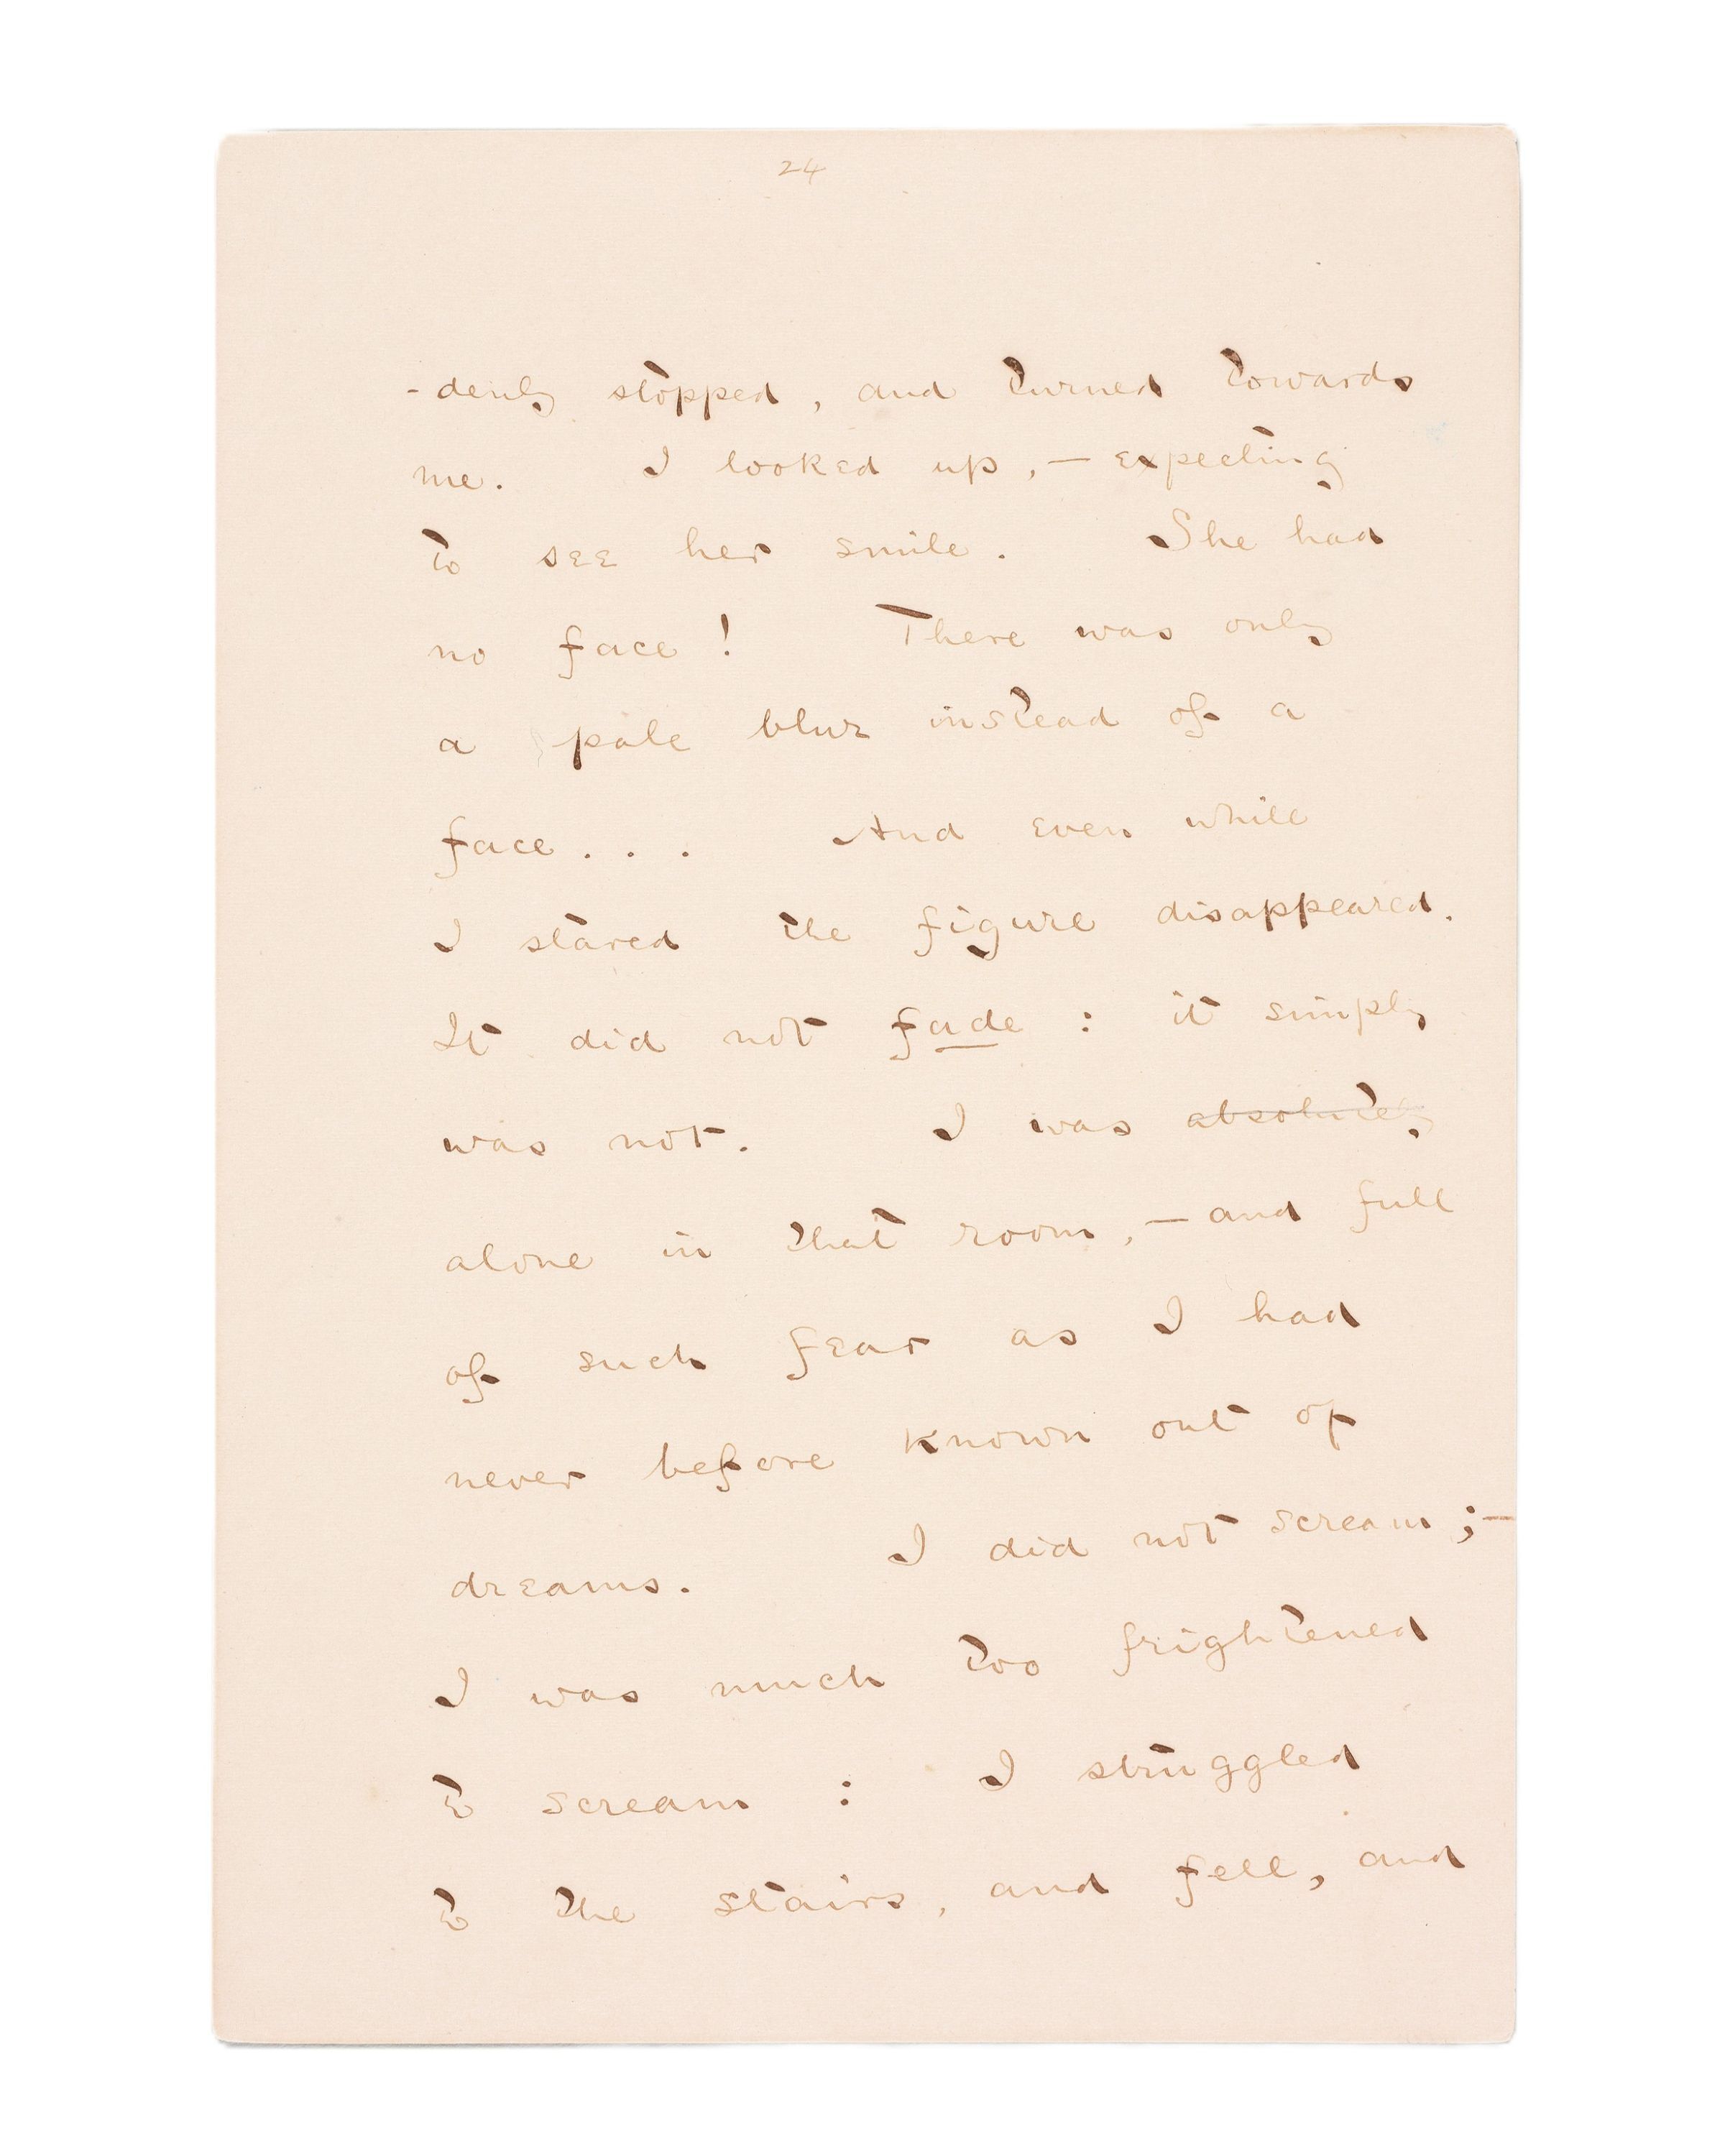 24
-denly stopped, and turned towards
me. I looked up,— expecting
to see her smile. She had
no face! There was only
a pale blur instead of a
face... And even while
I stared the figure disappeared.
It did not fade: it simply
was not. I was absolutely
alone in that room,— and full
of such fear as I had
never before known out of
dreams. I did not scream;—
I was much too frightened
to scream: I struggled
to the stairs, and fell, and